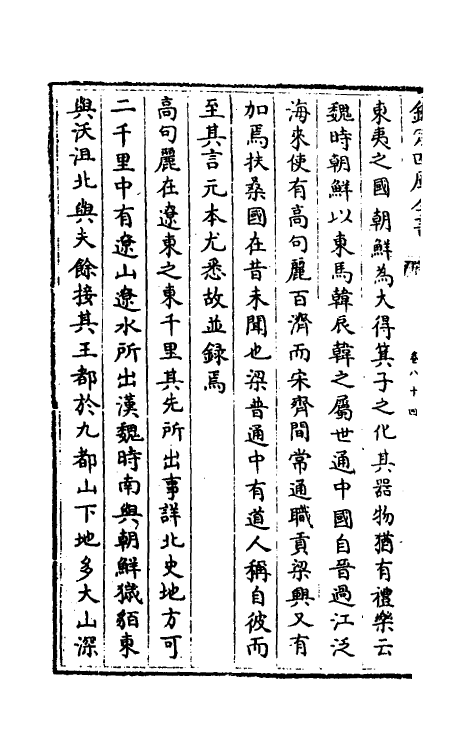 欽定四庫全書
卷八十四
東夷之國朝鮮為大得箕子之化其器物猶有禮樂云
魏時朝鮮以東馬韓辰韓之屬世通中國自晉過江泛
海來使有高句麗百濟而宋齊間常通職貢梁興又有
加焉扶桑國在昔未聞也梁普通中有道人稱自彼而
至其言元本尤悉故並錄焉
高句麗在遼東之東千里其先所出事詳北史地方可
二千里中有遼山遼水所出漢魏時南與朝鮮獩貊東
與沃沮北與夫餘接其王都於九都山下地多大山深